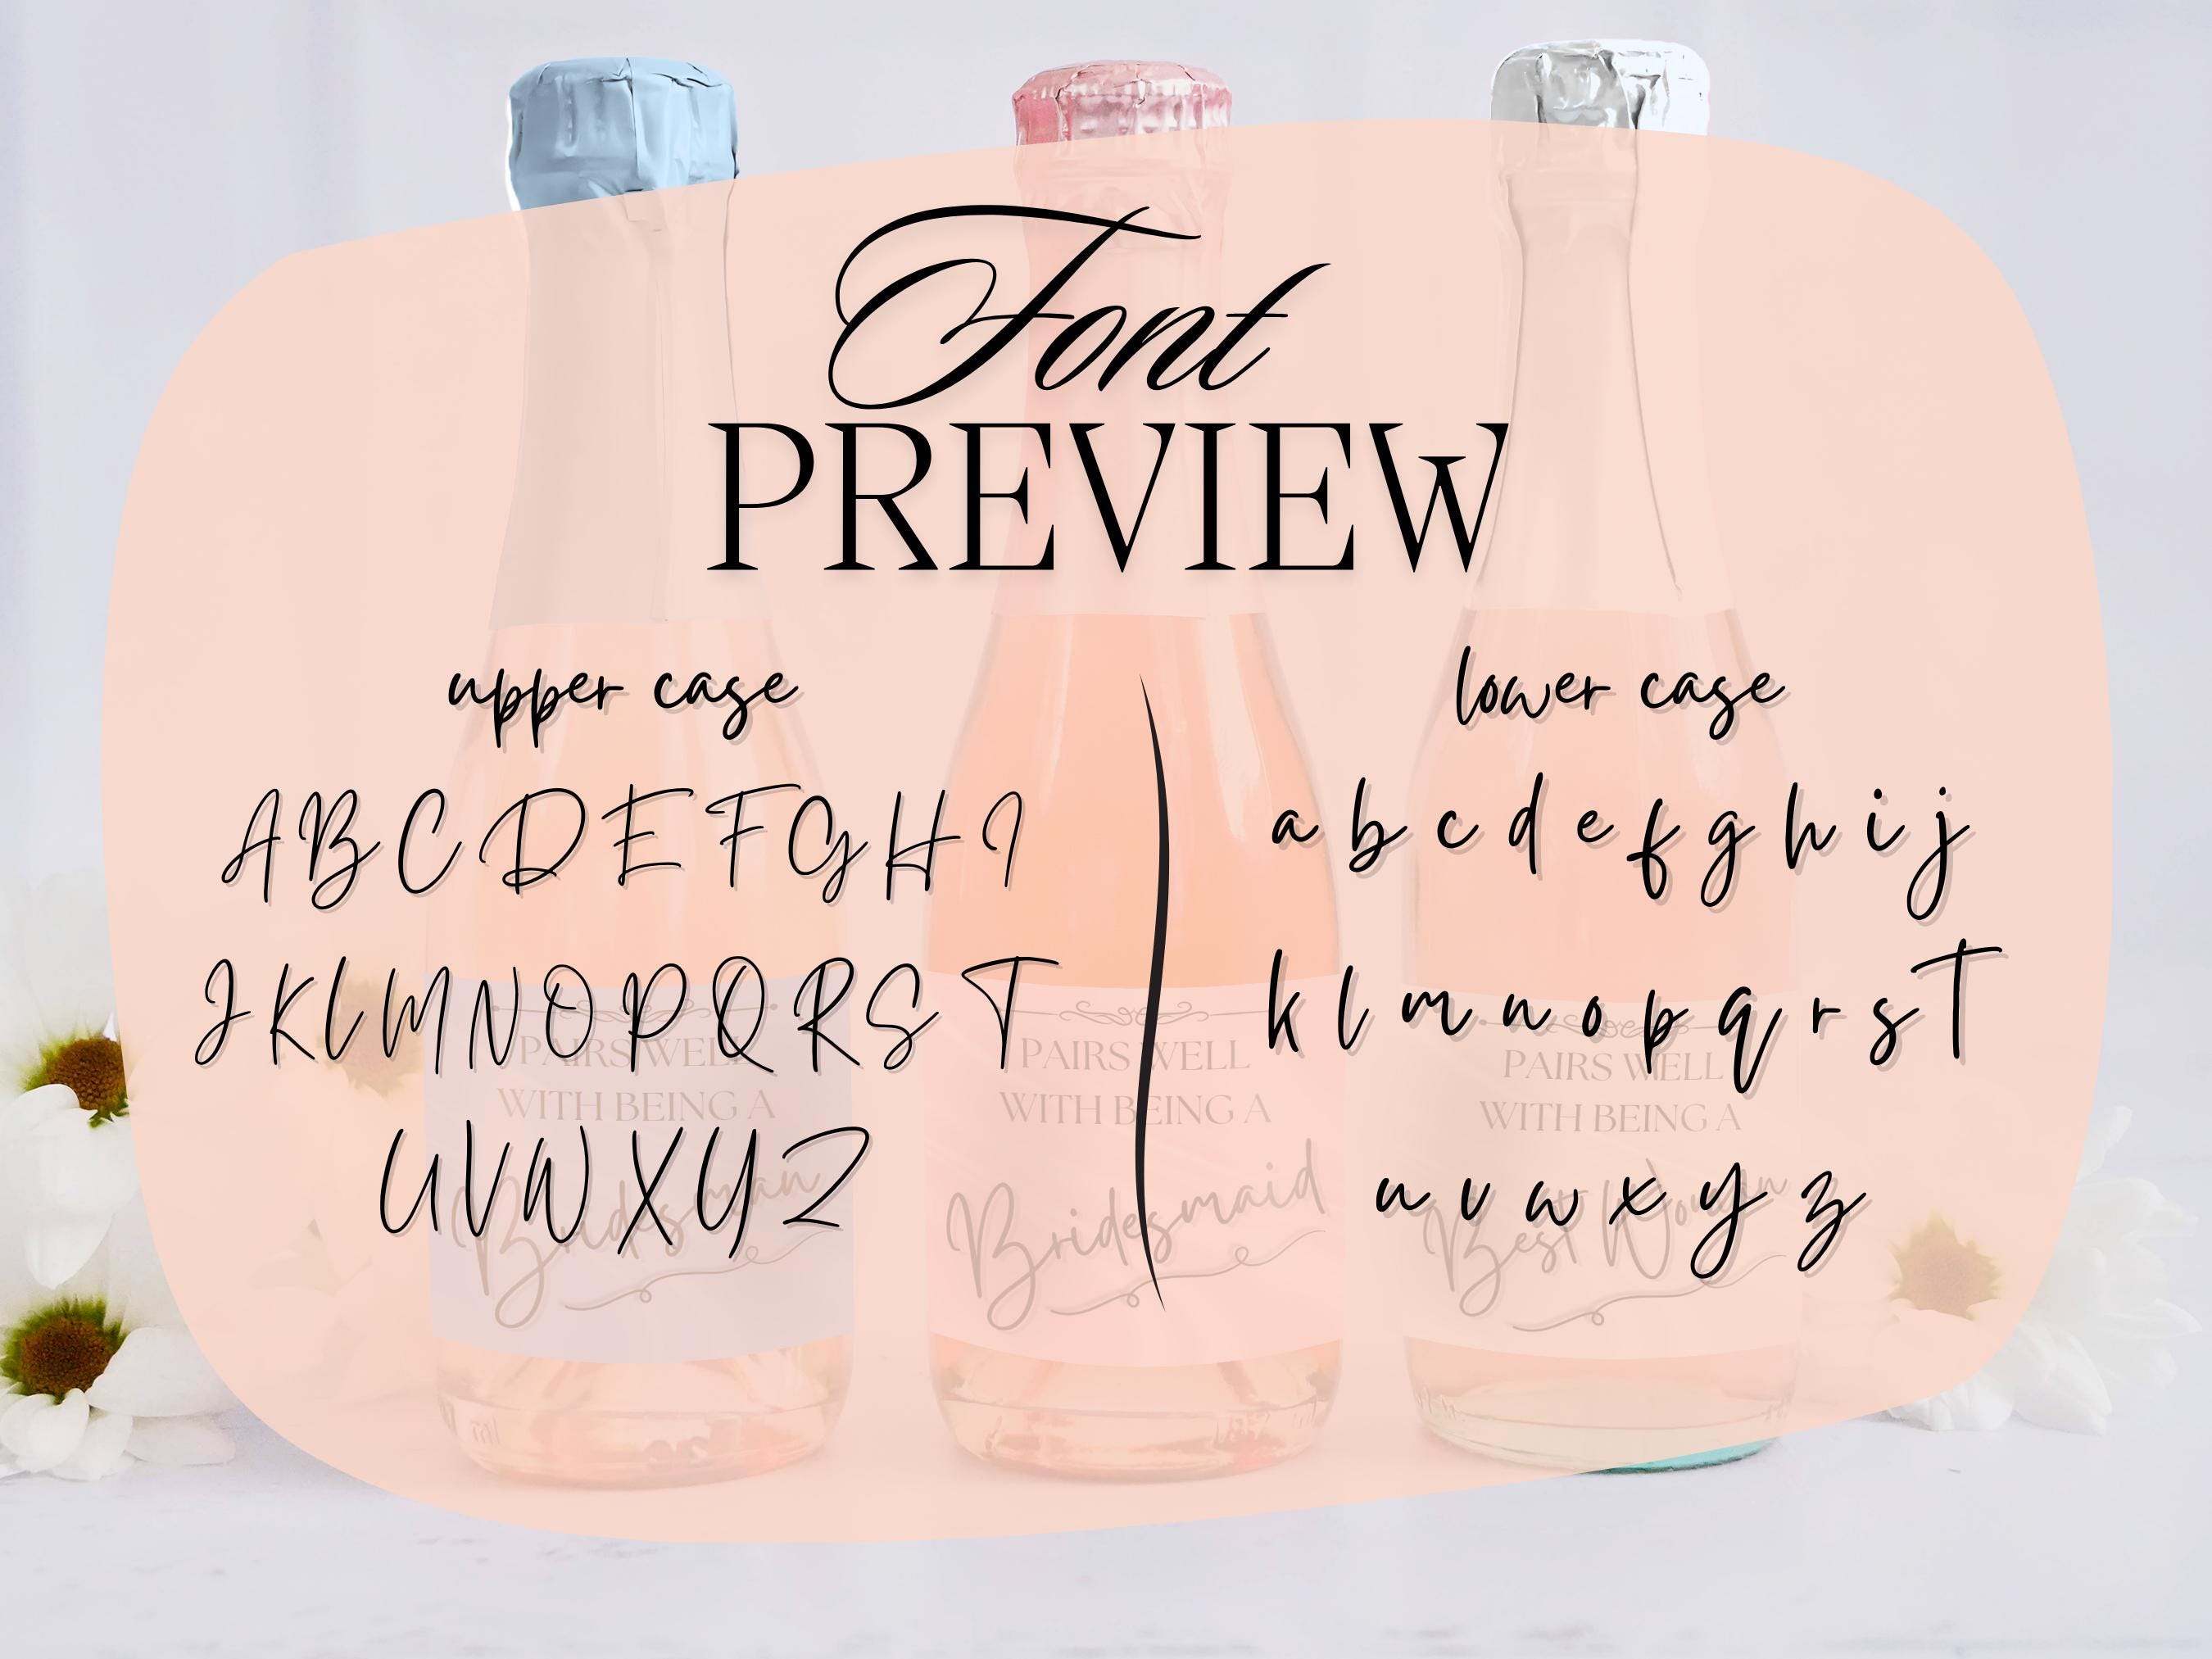 Font
PREVIEW
upper case
A B C D E F G H I
J K L M N O P Q R S T
U V W X Y Z
lower case
a b c d e f g h i j
k l m n o p q r s t
u v w x y z
PAIRS WELL
WITH BEING A
Bridesman
PAIRS WELL
WITH BEING A
Bridesmaid
PAIRS WELL
WITH BEING A
Best Woman